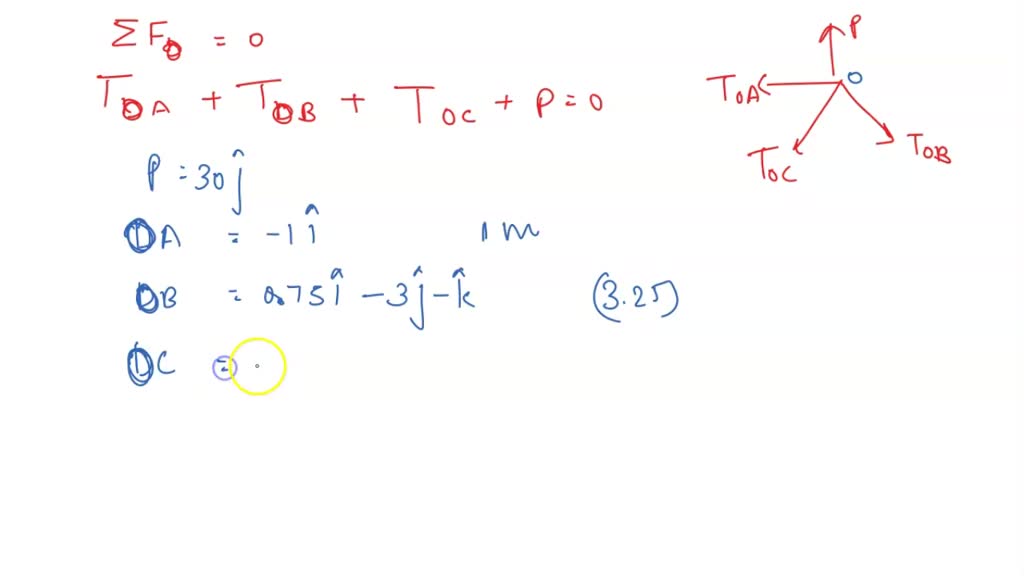 ΣF_D = 0
T_DA + T_DB + T_OC + P = 0
P = 30 ĵ
DA = -1 î 1 m
DB = 0.75 î - 3 ĵ - k̂ (3.25)
DC =
P
O
T_OA
T_OB
T_OC